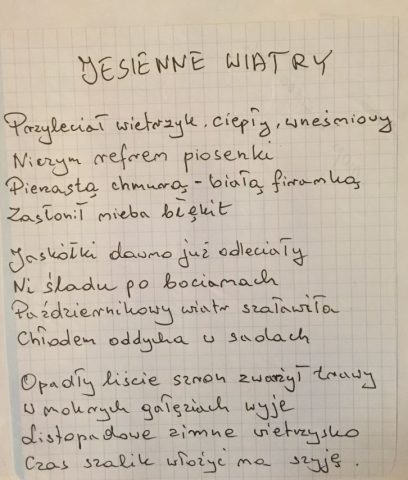 JESIENNE WIATRY
Przyleciał wietrzyk, ciepły, wneśmiovy
Niczym refrem piosenki
Pierzastą chmurą - białą firamką
Zasłonił nieba błękit
Jaskółki dawno już odleciały
Ni śladu po bocianach
Październikowy wiatr szaławiła
Chłodem oddycha w sadach
Opadły liście szron zwarzył trawy
W mokrych gałęziach wyje
Listopadowe zimne wietrzysko
Czas szalik włożyć na szyję.